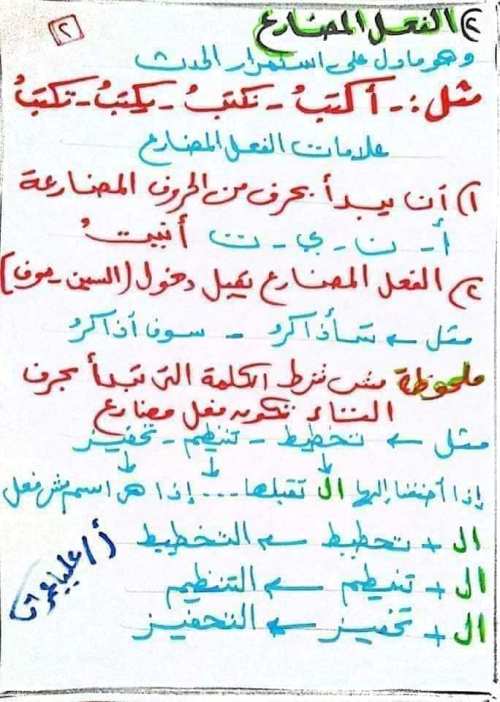 ٢) الفعل المضارع
٢
وهو ما دل على استمرار الحدث
مثل :- أكتبُ - نكتبُ - يكتبُ - تكتبُ
علامات الفعل المضارع
١) أن يبدأ بحرف من الحروف المضارعة
أ - ن - ي - ت أنيتُ
٢) الفعل المضارع يقبل دخول (السين - سوف)
مثل ← سأذاكرُ - سوف أذاكرُ
ملحوظة مش شرط الكلمة التى تبدأ بحرف
التاء تكون فعل مضارع
مثل ← تخطيط - تنظيم - تحفيز
إذا أضفنا إليها ال تقبلها ... إذا هى اسم مش فعل
ال + تخطيط ← التخطيط
ال + تنظيم ← التنظيم
ال + تحفيز ← التحفيز